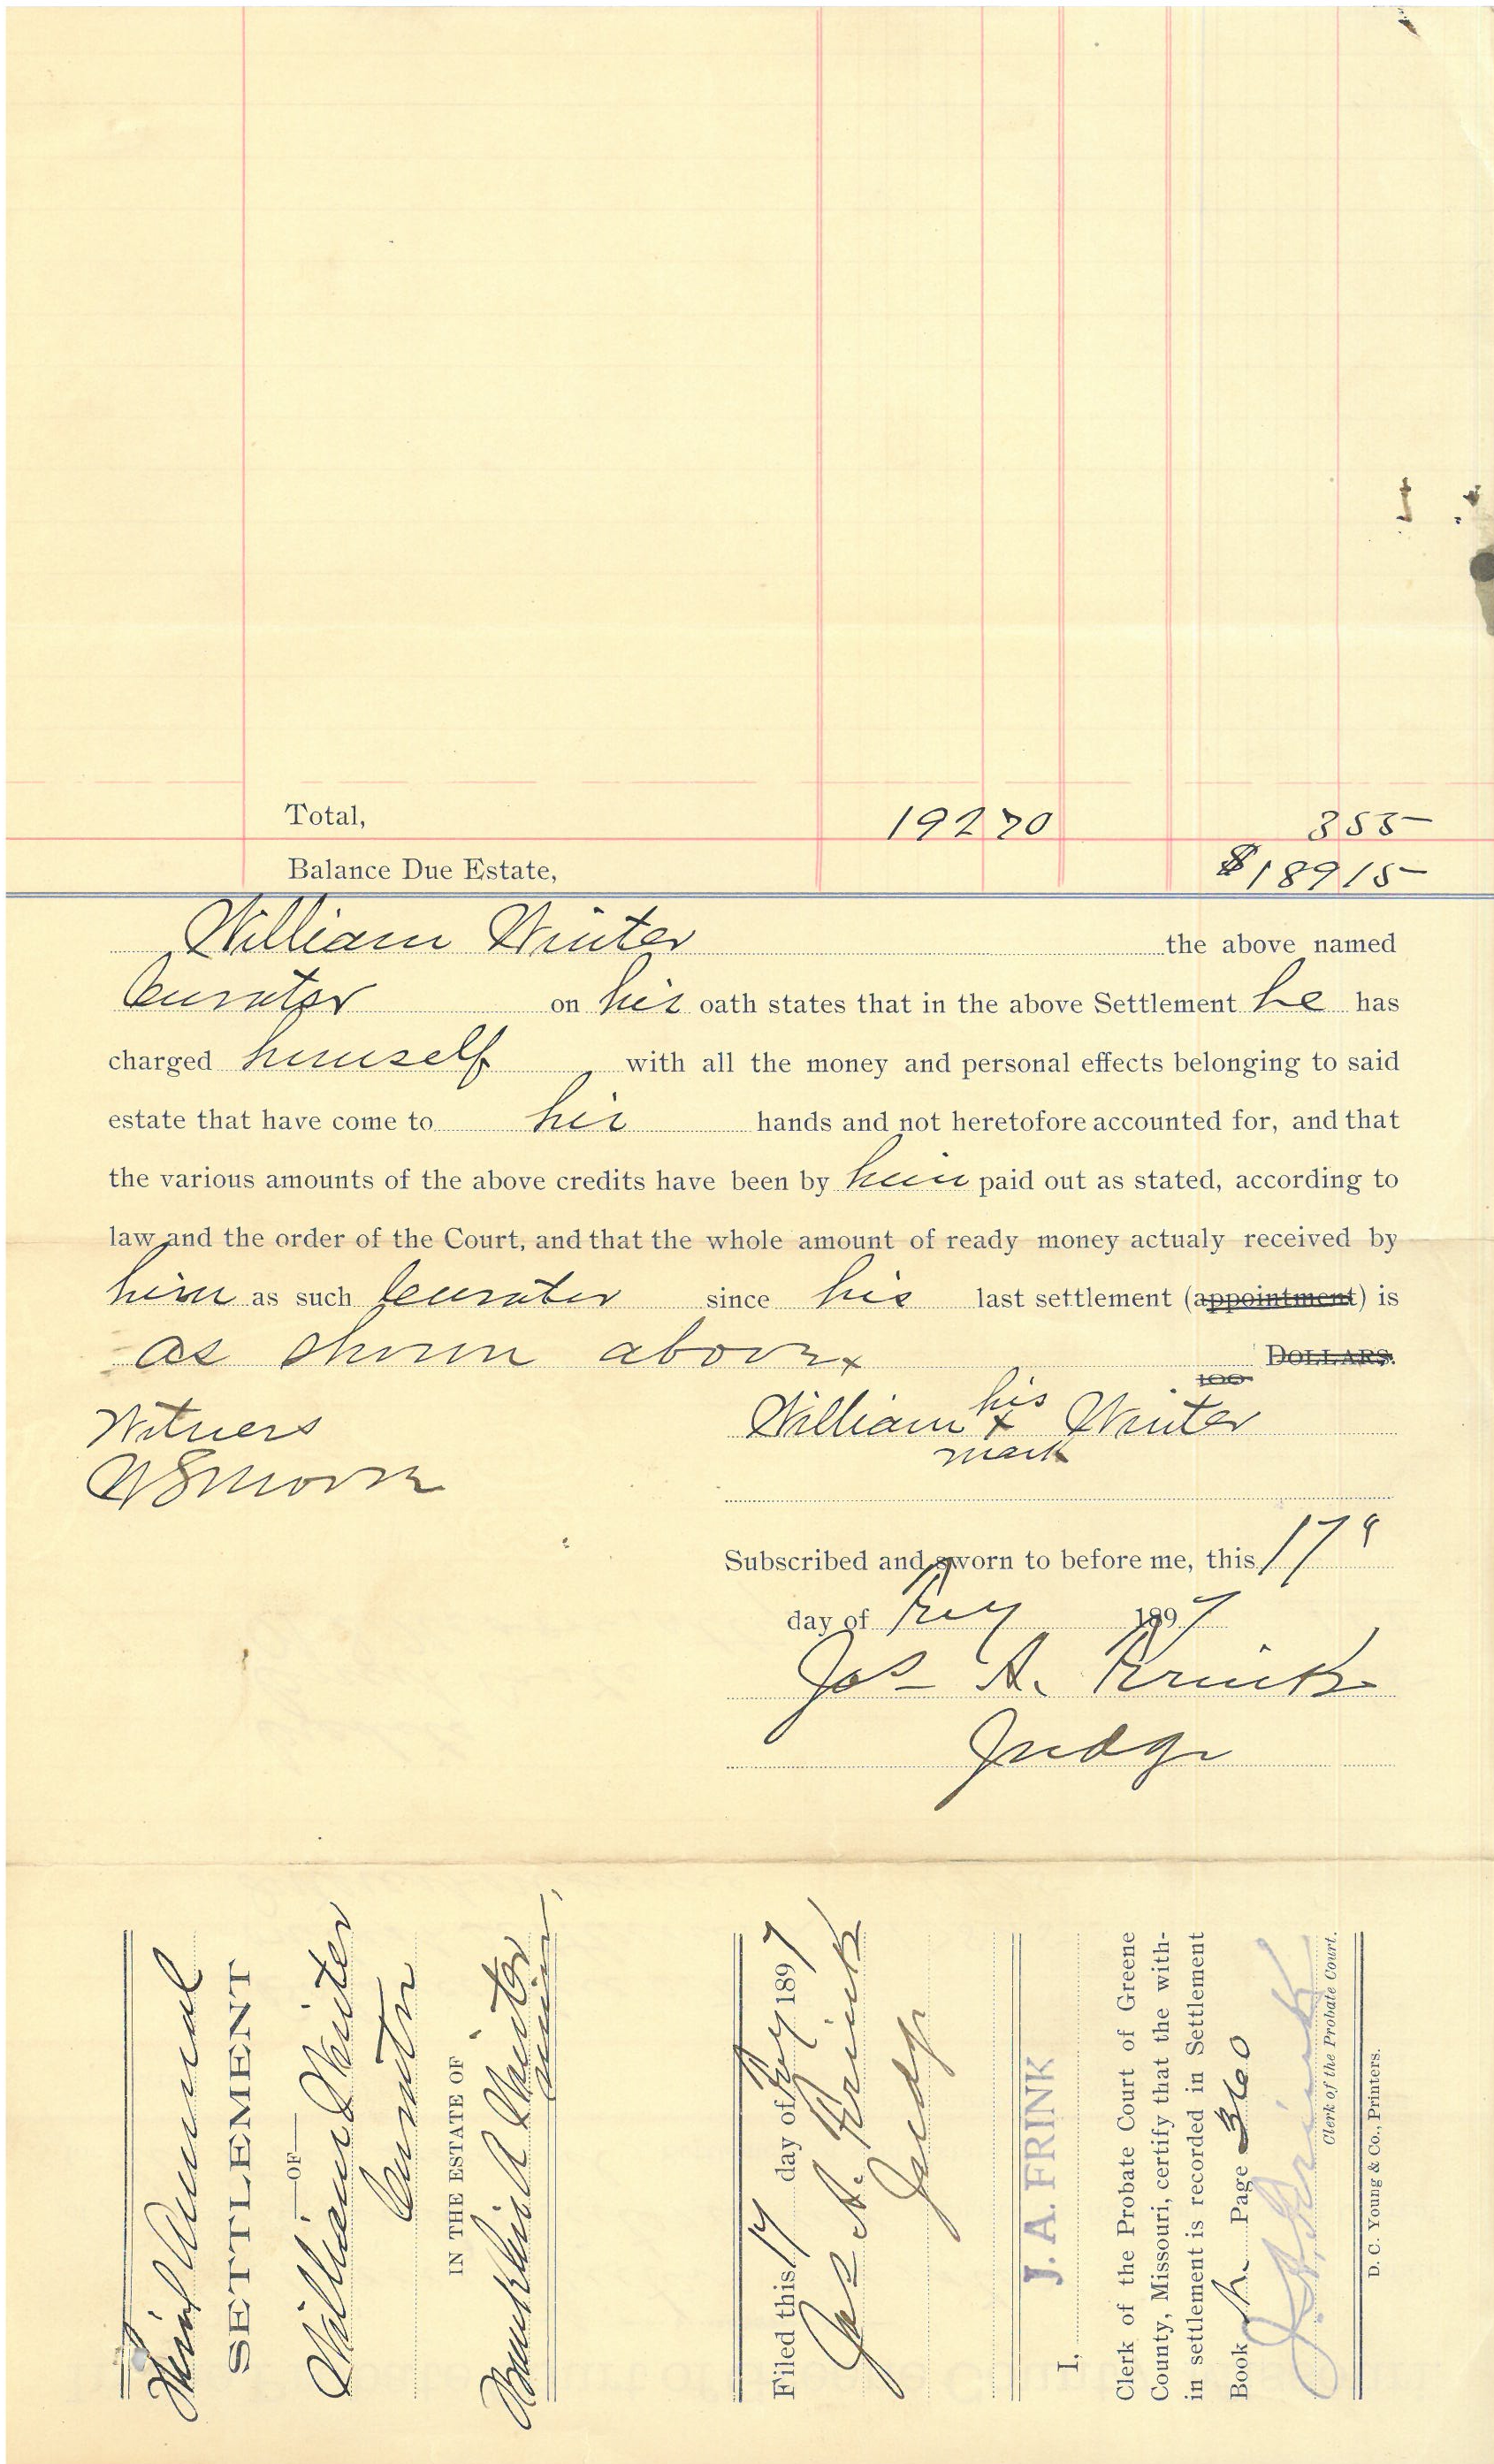 Total, 192 70 3 55
Balance Due Estate, $189 15
William Winter the above named
Curator on his oath states that in the above Settlement he has
charged himself with all the money and personal effects belonging to said
estate that have come to his hands and not heretofore accounted for, and that
the various amounts of the above credits have been by him paid out as stated, according to
law and the order of the Court, and that the whole amount of ready money actualy received by
him as such Curator since his last settlement (appointment) is
as shown above
100 DOLLARS.
Witness
William his x mark Winter
Subscribed and sworn to before me, this 17"
day of Feby 1897
Jos A. Frink
Judge
Third Annual
SETTLEMENT
—OF—
William Winter
Curator
IN THE ESTATE OF
Winter
minor
Filed this 17 day of Feby 1897
Jos A. Frink
Judge
I, J. A. FRINK
Clerk of the Probate Court of Greene
County, Missouri, certify that the with-
in settlement is recorded in Settlement
Book Page 360
J. A. Frink
Clerk of the Probate Court.
D. C. Young & Co., Printers.